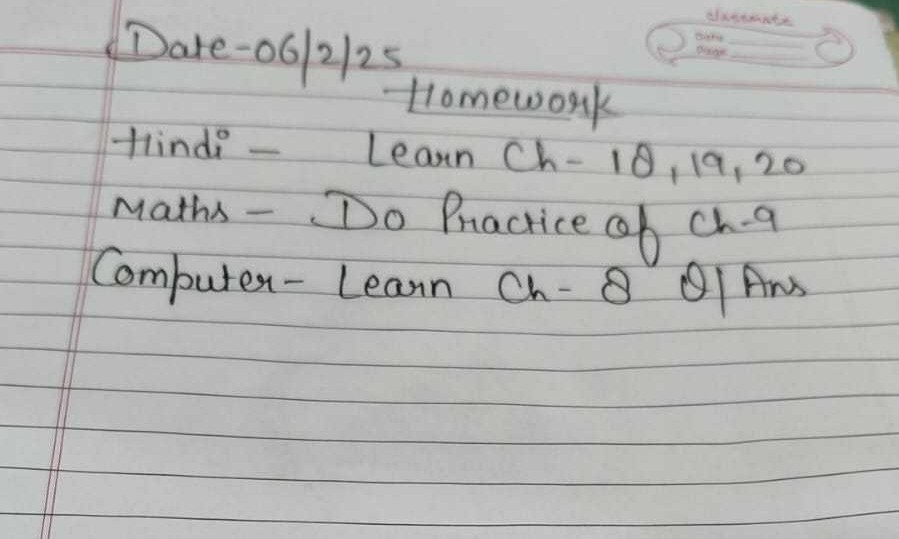 classmate
Date
Page
Date-06/2/25
Homework
Hindi - Learn Ch- 18, 19, 20
Maths - Do Practice of Ch-9
Computer- Learn Ch- 8 Q/Ans